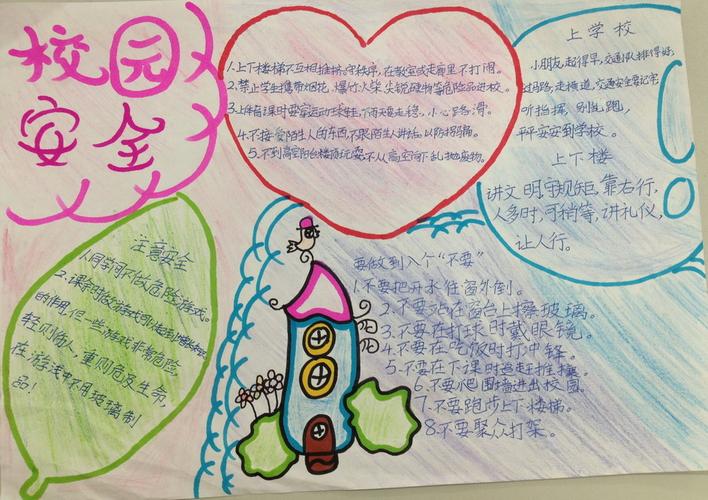 校园
安全
1.上下楼梯不互相推挤。守秩序，在教室或走廊里不打闹。
2.禁止学生携带烟花，爆竹火柴尖锐硬物等危险品进校。
3.上体育课时要穿运动球鞋，下雨天要走稳，小心路滑。
4.不接受陌生人的东西，不跟陌生人讲话，以防拐骗。
5.不到高空阳台楼顶玩耍，不从高空向下乱抛废物。
上学校
小朋友，起得早，交通队排得好，
过马路，走横道，交通安全要记牢，
听指挥，别乱跑，
平平安安到学校。
上下楼
讲文明，守规矩，靠右行，
人多时，可稍等，讲礼仪，
让人行。
注意安全
1.同学间不做危险游戏。
2.课余时做游戏可以起到
的作用，但一些游戏非常危险
轻则伤人，重则危及生命，
在游戏中不用玻璃制
品！
要做到八个“不要”
1.不要把开水往窗外倒。
2.不要站在窗台上擦玻璃。
3.不要在打球时戴眼镜。
4.不要在吃饭时打冲锋。
5.不要在下课时追赶推攘。
6.不要爬围墙进出校园。
7.不要跑步上下楼梯。
8.不要聚众打架。